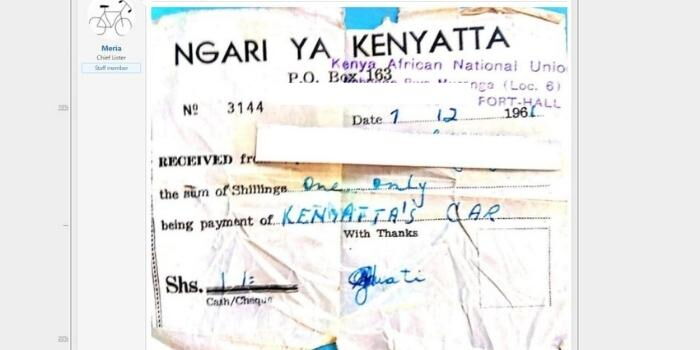 Meria
Chief Lister
Staff member
NGARI YA KENYATTA
Kenya African National Unio
P.O. Box 163
nga (Loc. 6)
FORT-HALL
Nº 3144
Date 1 12 196
RECEIVED fr
the sum of Shillings One only
being payment of KENYATTA'S CAR
With Thanks
Shs. 1/=
Cash/Cheque